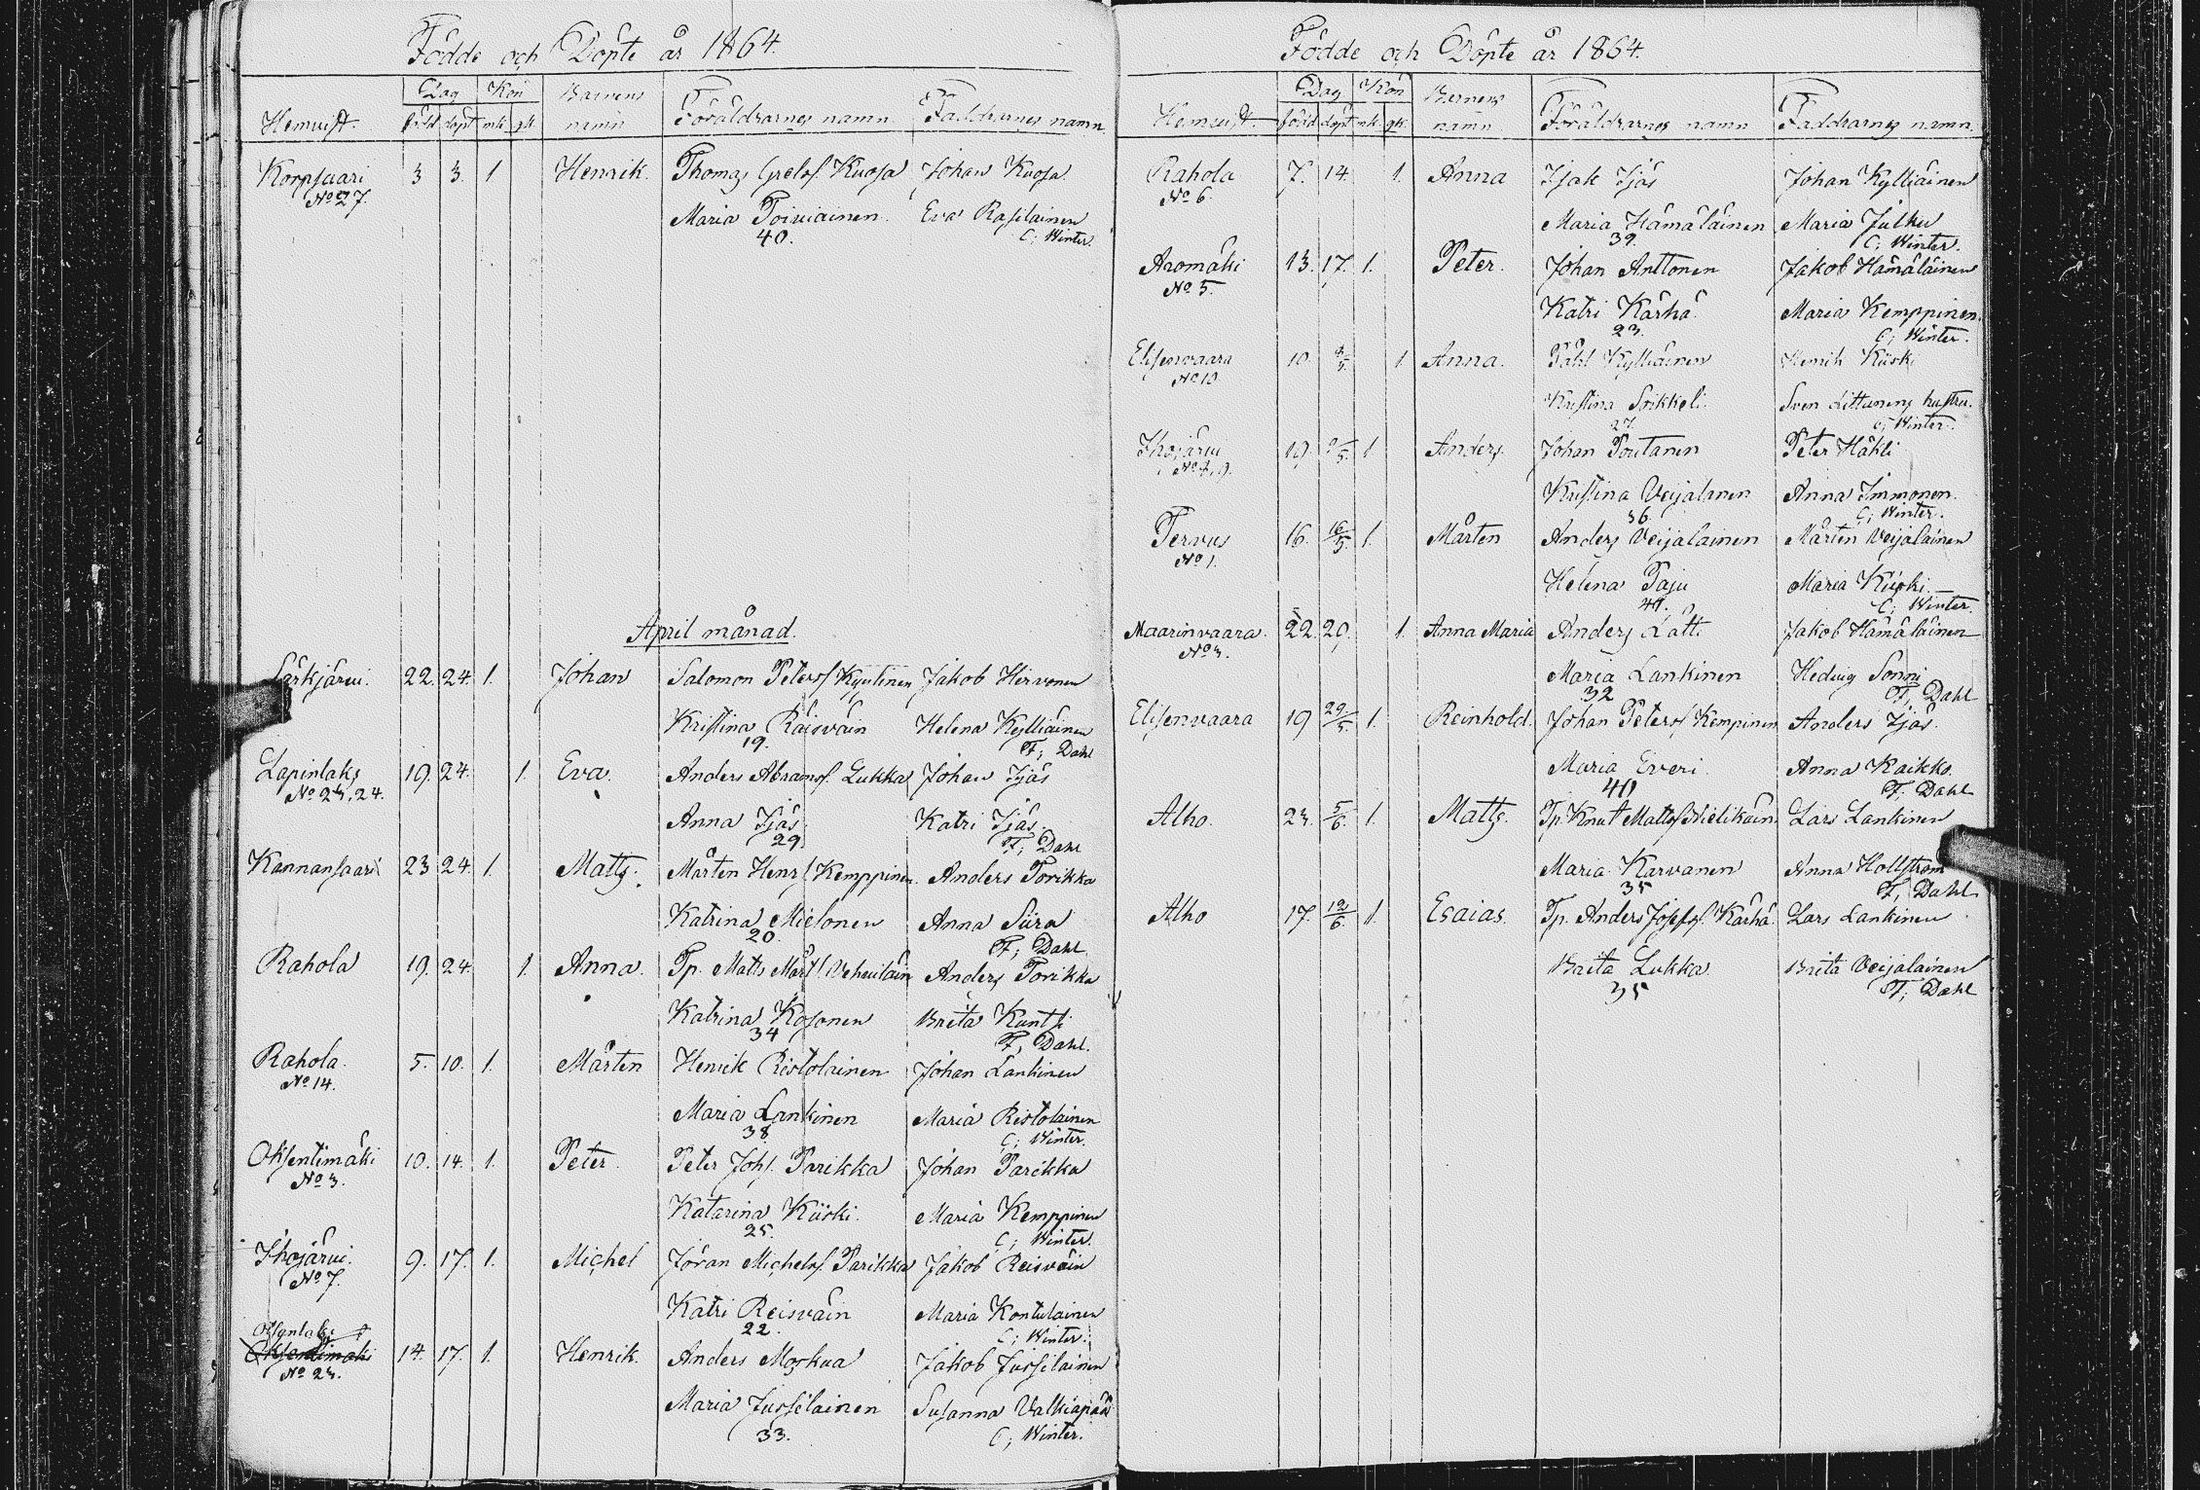 Födde och Döpte år 1864.
Hemvist. Dag Kön Barnens namn Föräldrarnes namn Faddrarnes namn
född döpt mk. qk.
Korpsaari 3 3. 1 Henrik. Thomas Grelsf. Kuosa Johan Kuosa
No 27.
Maria Toiviainen. Eva Rasilainen
40. C; Winter.
April månad.
Särkjärvi. 22. 24. 1. Johan Salomon Petersf Kyytinen Jakob Hirvonen
Kristina Räisväin Helena Kylliäinen
19. F; Dahl
Lapinlaks 19. 24. 1. Eva Anders Abramsf. Lukka Johan Ijäs
No 23, 24.
Anna Ijäs Katri Ijäs
29 F; Dahl
Kannansaari 23 24. 1. Matts. Mårten Henrsf Kemppinen. Anders Torikka
Katrina Mielonen Anna Siira
20. F; Dahl
Rahola 19. 24. 1. Anna. Tp. Matts Mårtsf Vehviläin Anders Torikka
Katrina Kosonen Brita Kuntsi
34 F; Dahl.
Rahola. 5. 10. 1. Mårten Henrik Ristolainen Johan Lankinen
No 14.
Maria Lankinen Maria Ristolainen
38 C; Winter.
Oksentimäki 10. 14. 1. Peter. Peter Johsf. Parikka Johan Parikka
No 3.
Katarina Kiiski. Maria Kemppinen
25. C; Winter.
Ihojärvi. 9. 17. 1. Michel Jöran Michelsf. Parikka Jakob Reisväin
No 7.
Katri Reisväin Maria Kontulainen
22. C; Winter.
Oksentaks
Oksentimäki 14. 17. 1. Henrik. Anders Moskua Jakob Jussilainen
No 23.
Maria Jussilainen Susanna Valkiapää
33. C; Winter.
Födde och Döpte år 1864.
Hemvist. Dag Kön Barnens namn Föräldrarnes namn Faddrarnes namn.
född döpt mk. qk.
Rahola 7. 14. 1. Anna Isak Ijäs Johan Kylliäinen
No 6.
Maria Hämäläinen Maria Julku
39. C; Winter.
Aromäki 13. 17. 1. Peter. Johan Anttonen Jakob Hämäläinen
No 5.
Katri Kärhä. Maria Kemppinen.
23. C; Winter.
Elisenvaara 10. 1 Anna. Påhl Kylliäinen Henrik Kiiski
No 10
Kristina Soikkeli. Sven Littunens hustru.
27. C; Winter.
Ihojärvi 19. 1 Anders. Johan Poutanen Peter Häkli
Kristina Veijalanen Anna Immonen.
36. C; Winter.
Tervus 16. 16/5. 1. Mårten Anders Veijalainen Mårten Veijalainen
No 1.
Helena Paju Maria Kiiski
C; Winter.
Maarinvaara. 22. 29 1. Anna Maria Anders Lätti Jakob Hämäläinen
No 3.
Maria Lankinen Hedvig Sonni
32 F; Dahl
Elisenvaara 19 29/5. 1. Reinhold. Johan Petersf Kempinen Anders Ijäs.
Maria Everi. Anna Kaikko.
40 F; Dahl
Alho. 23. 5/6. 1. Matts. Tp. Knut Mattsf Mielikäin. Lars Lankinen
Maria Karvanen Anna Hollström
35 F; Dahl
Alho 17. 12/6. 1. Esaias. Tp. Anders Josefsf. Kärhä. Lars Lankinen
Brita Lukka Brita Veijalainen
35 F; Dahl